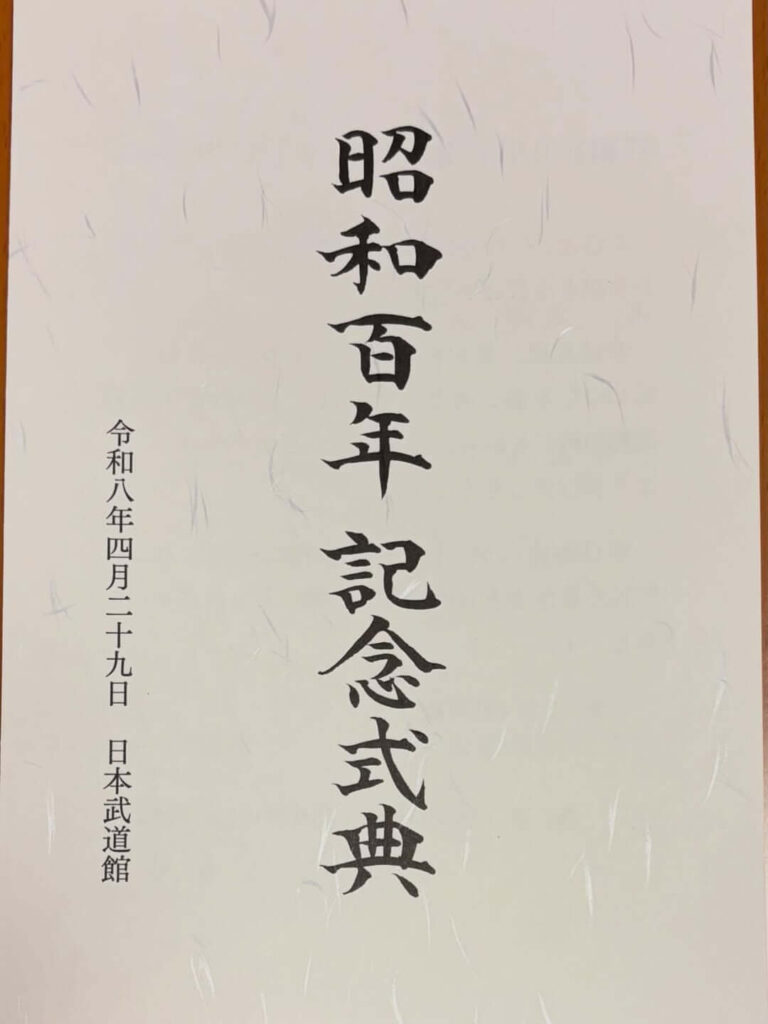 昭和百年 記念式典
令和八年四月二十九日 日本武道館